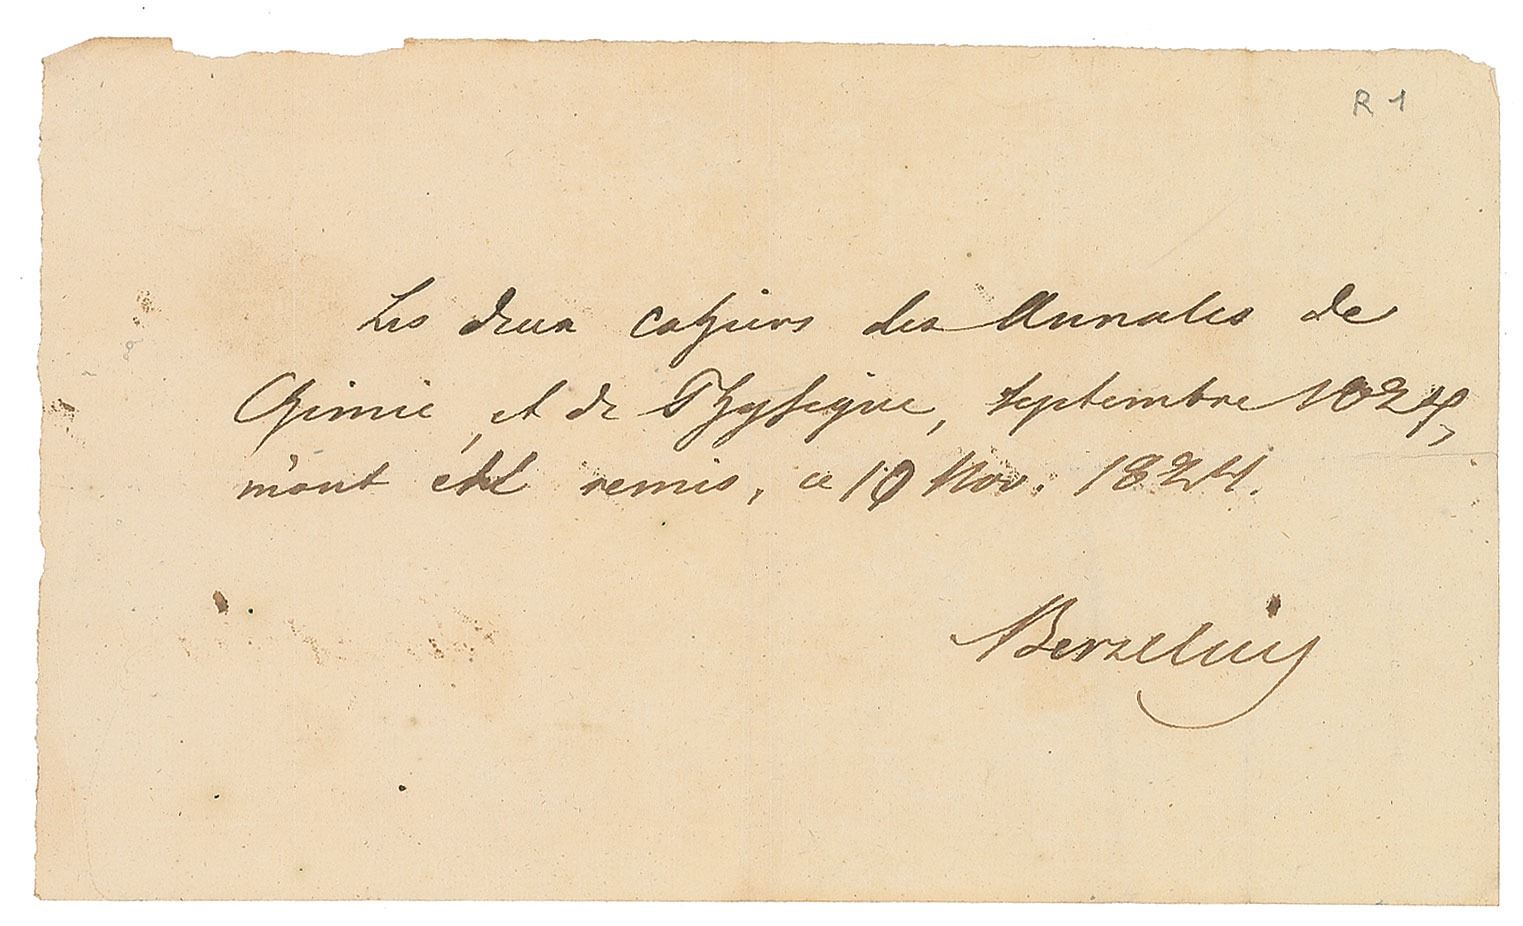 R 1
Les deux cahiers des Annales de
Chimie, et de Physique, Septembre 1824,
m'ont été remis, ce 10 Nov. 1824.
Berzelius